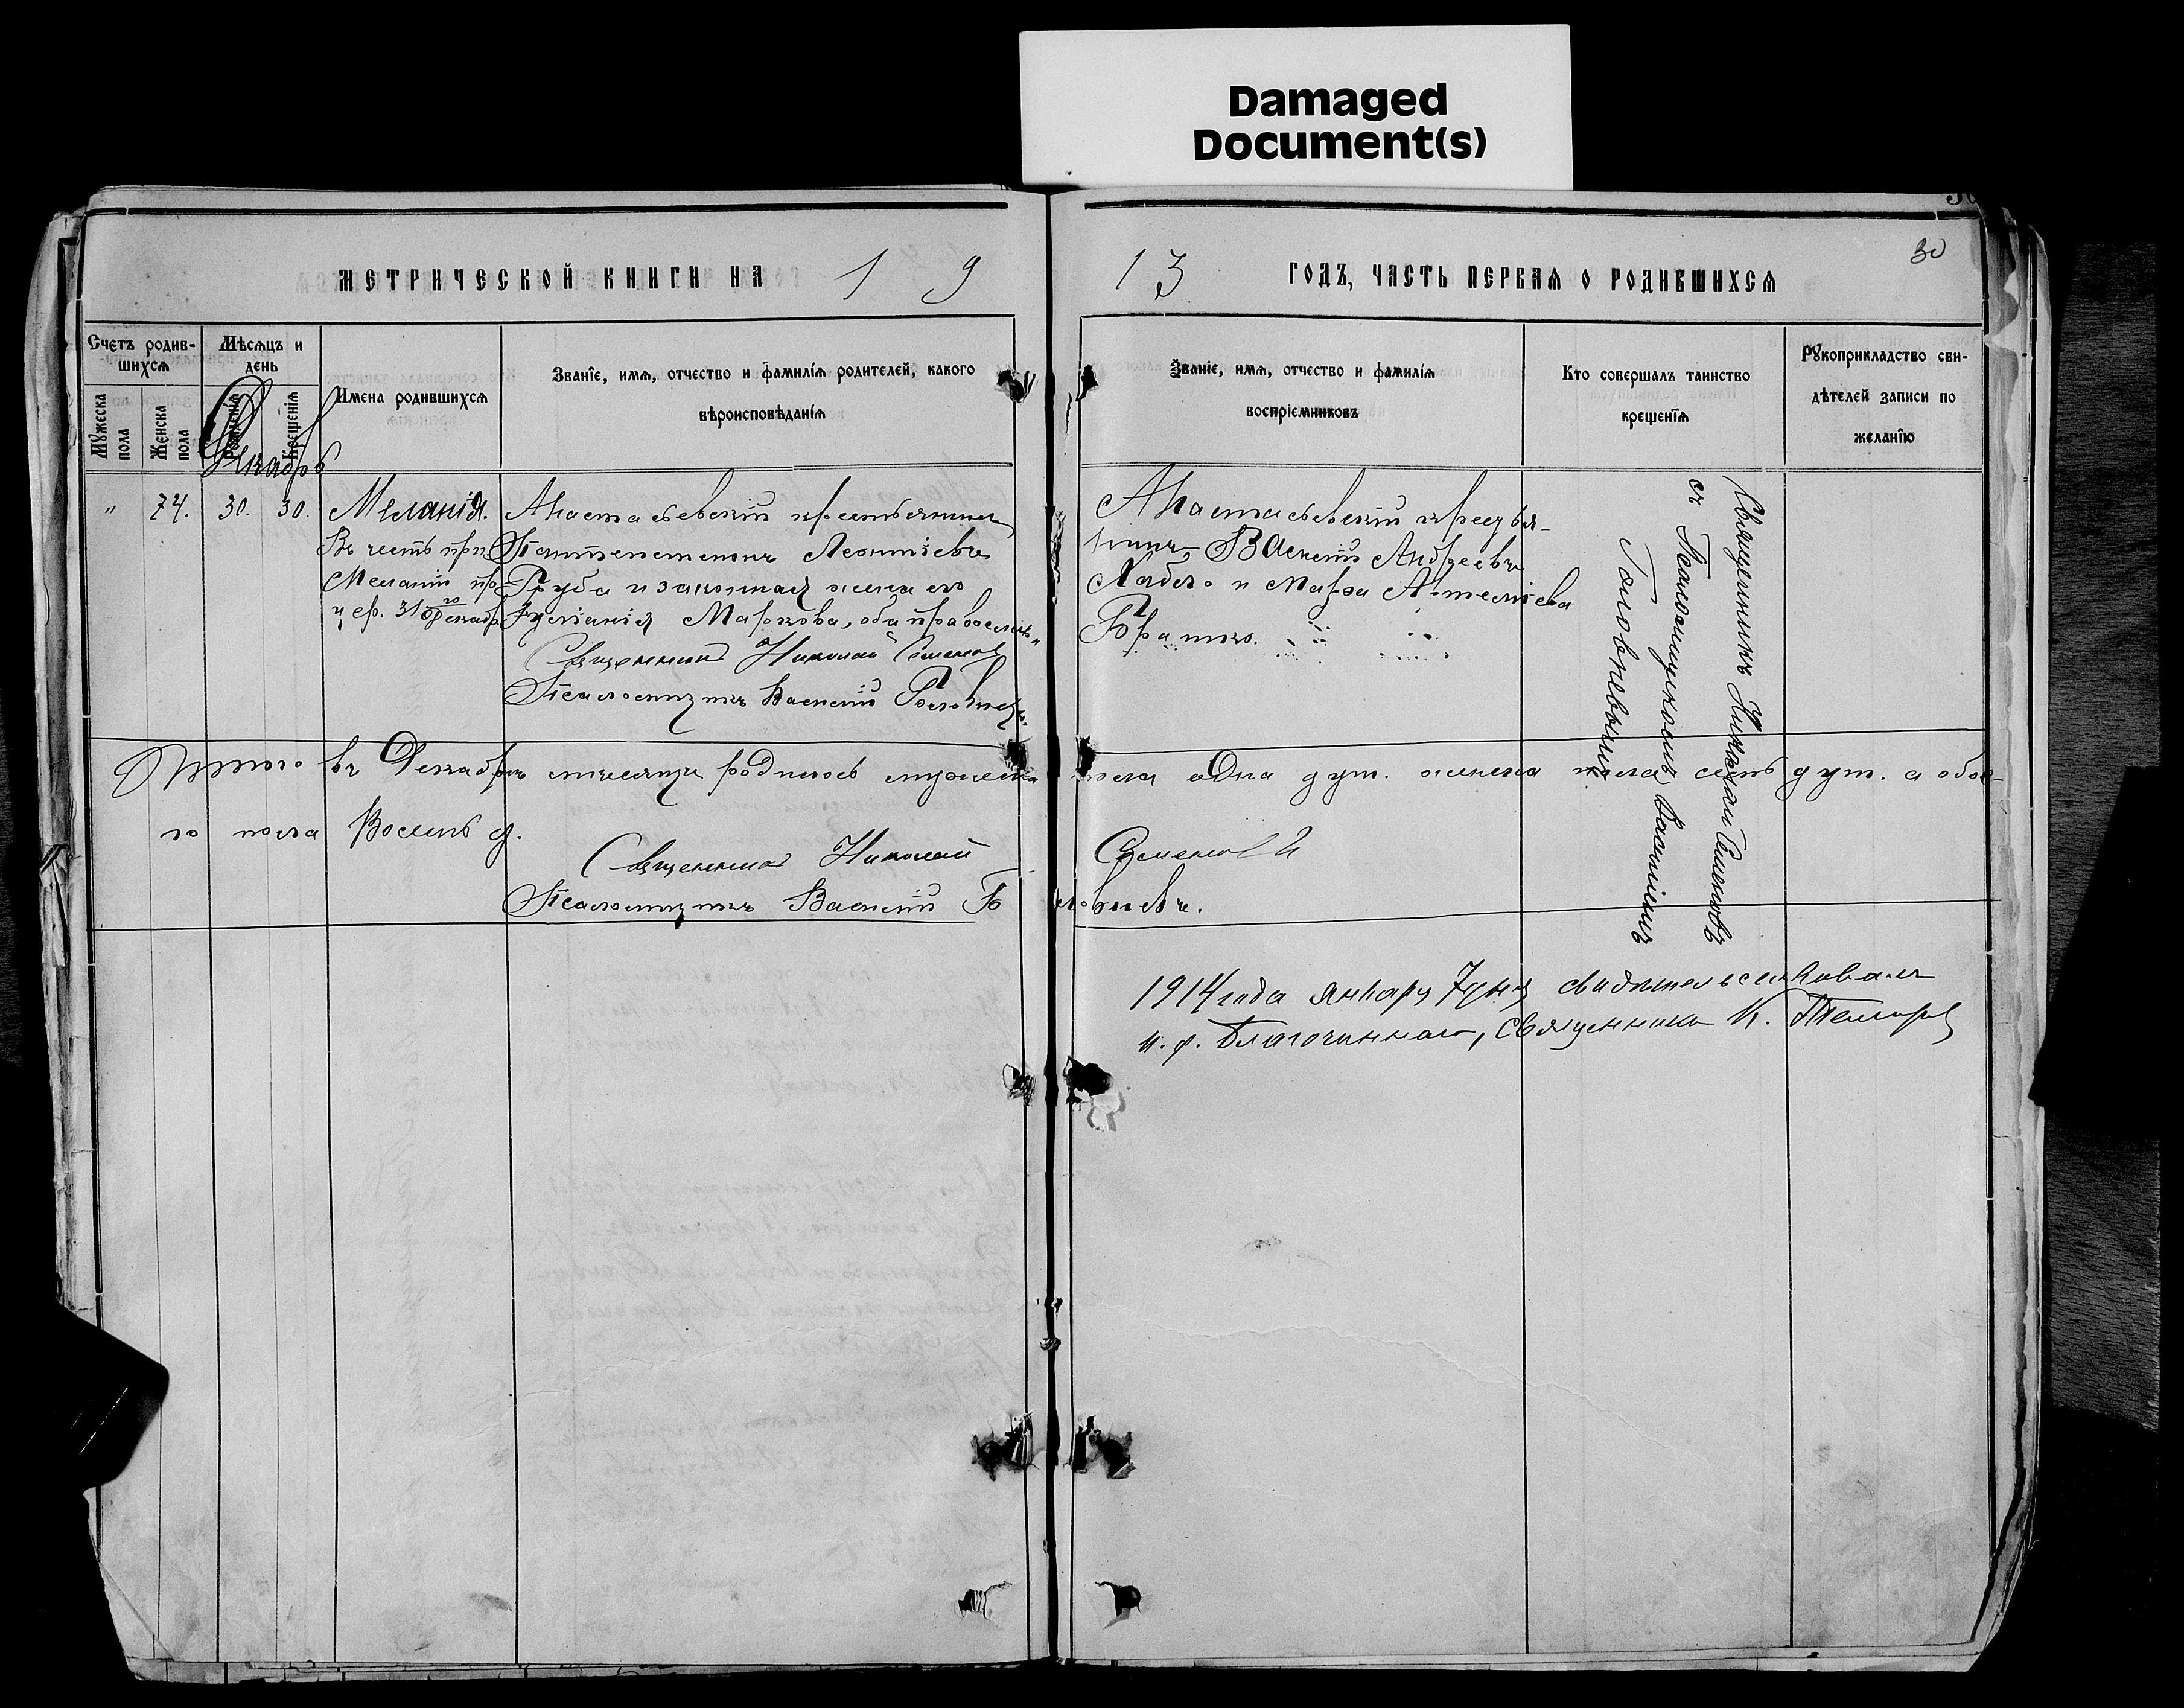 Damaged
Document(s)
30
МЕТРИЧЕСКОЙ КНИГИ НА 1913 ГОДЪ, ЧАСТЬ ПЕРВАЯ О РОДИВШИХСЯ
Счетъ родив-
шихся
Мѣсяцъ и
день
Мужеска
пола
Женска
пола
Рожденія
Крещенія
Имена родившихся
Званіе, имя, отчество и фамилія родителей, какого
вѣроисповѣданія
Званіе, имя, отчество и фамилія
воспріемниковъ
Кто совершалъ таинство
крещенія
Рукоприкладство сви-
дѣтелей записи по
желанію
Декабрь
" 74. 30. 30.
Меланія.
Въ честь прп.
Меланіи
31го декабр.
Анастасьевскій крестьянинъ
Пантелеимонъ Леонтіевъ
Груба и законная жена его
Маркова, оба православн.
Священникъ Николай Семеновъ
Псаломщикъ Василій Головневъ.
Анастасьевскій крестья-
нинъ Василій Андреевъ
и Марѳа
Священникъ Николай Семеновъ
съ Псаломщикомъ Василіемъ
Головневымъ
Итого въ Декабрѣ мѣсяцѣ родилось мужеска пола одна душ. женска пола семь душ. а обое-
го пола Восемь д.
Священникъ Николай Семеновъ
Псаломщикъ Василій Головневъ.
1914 года января 7 дня свидѣтельствовалъ
и. д. Благочиннаго, священникъ К.